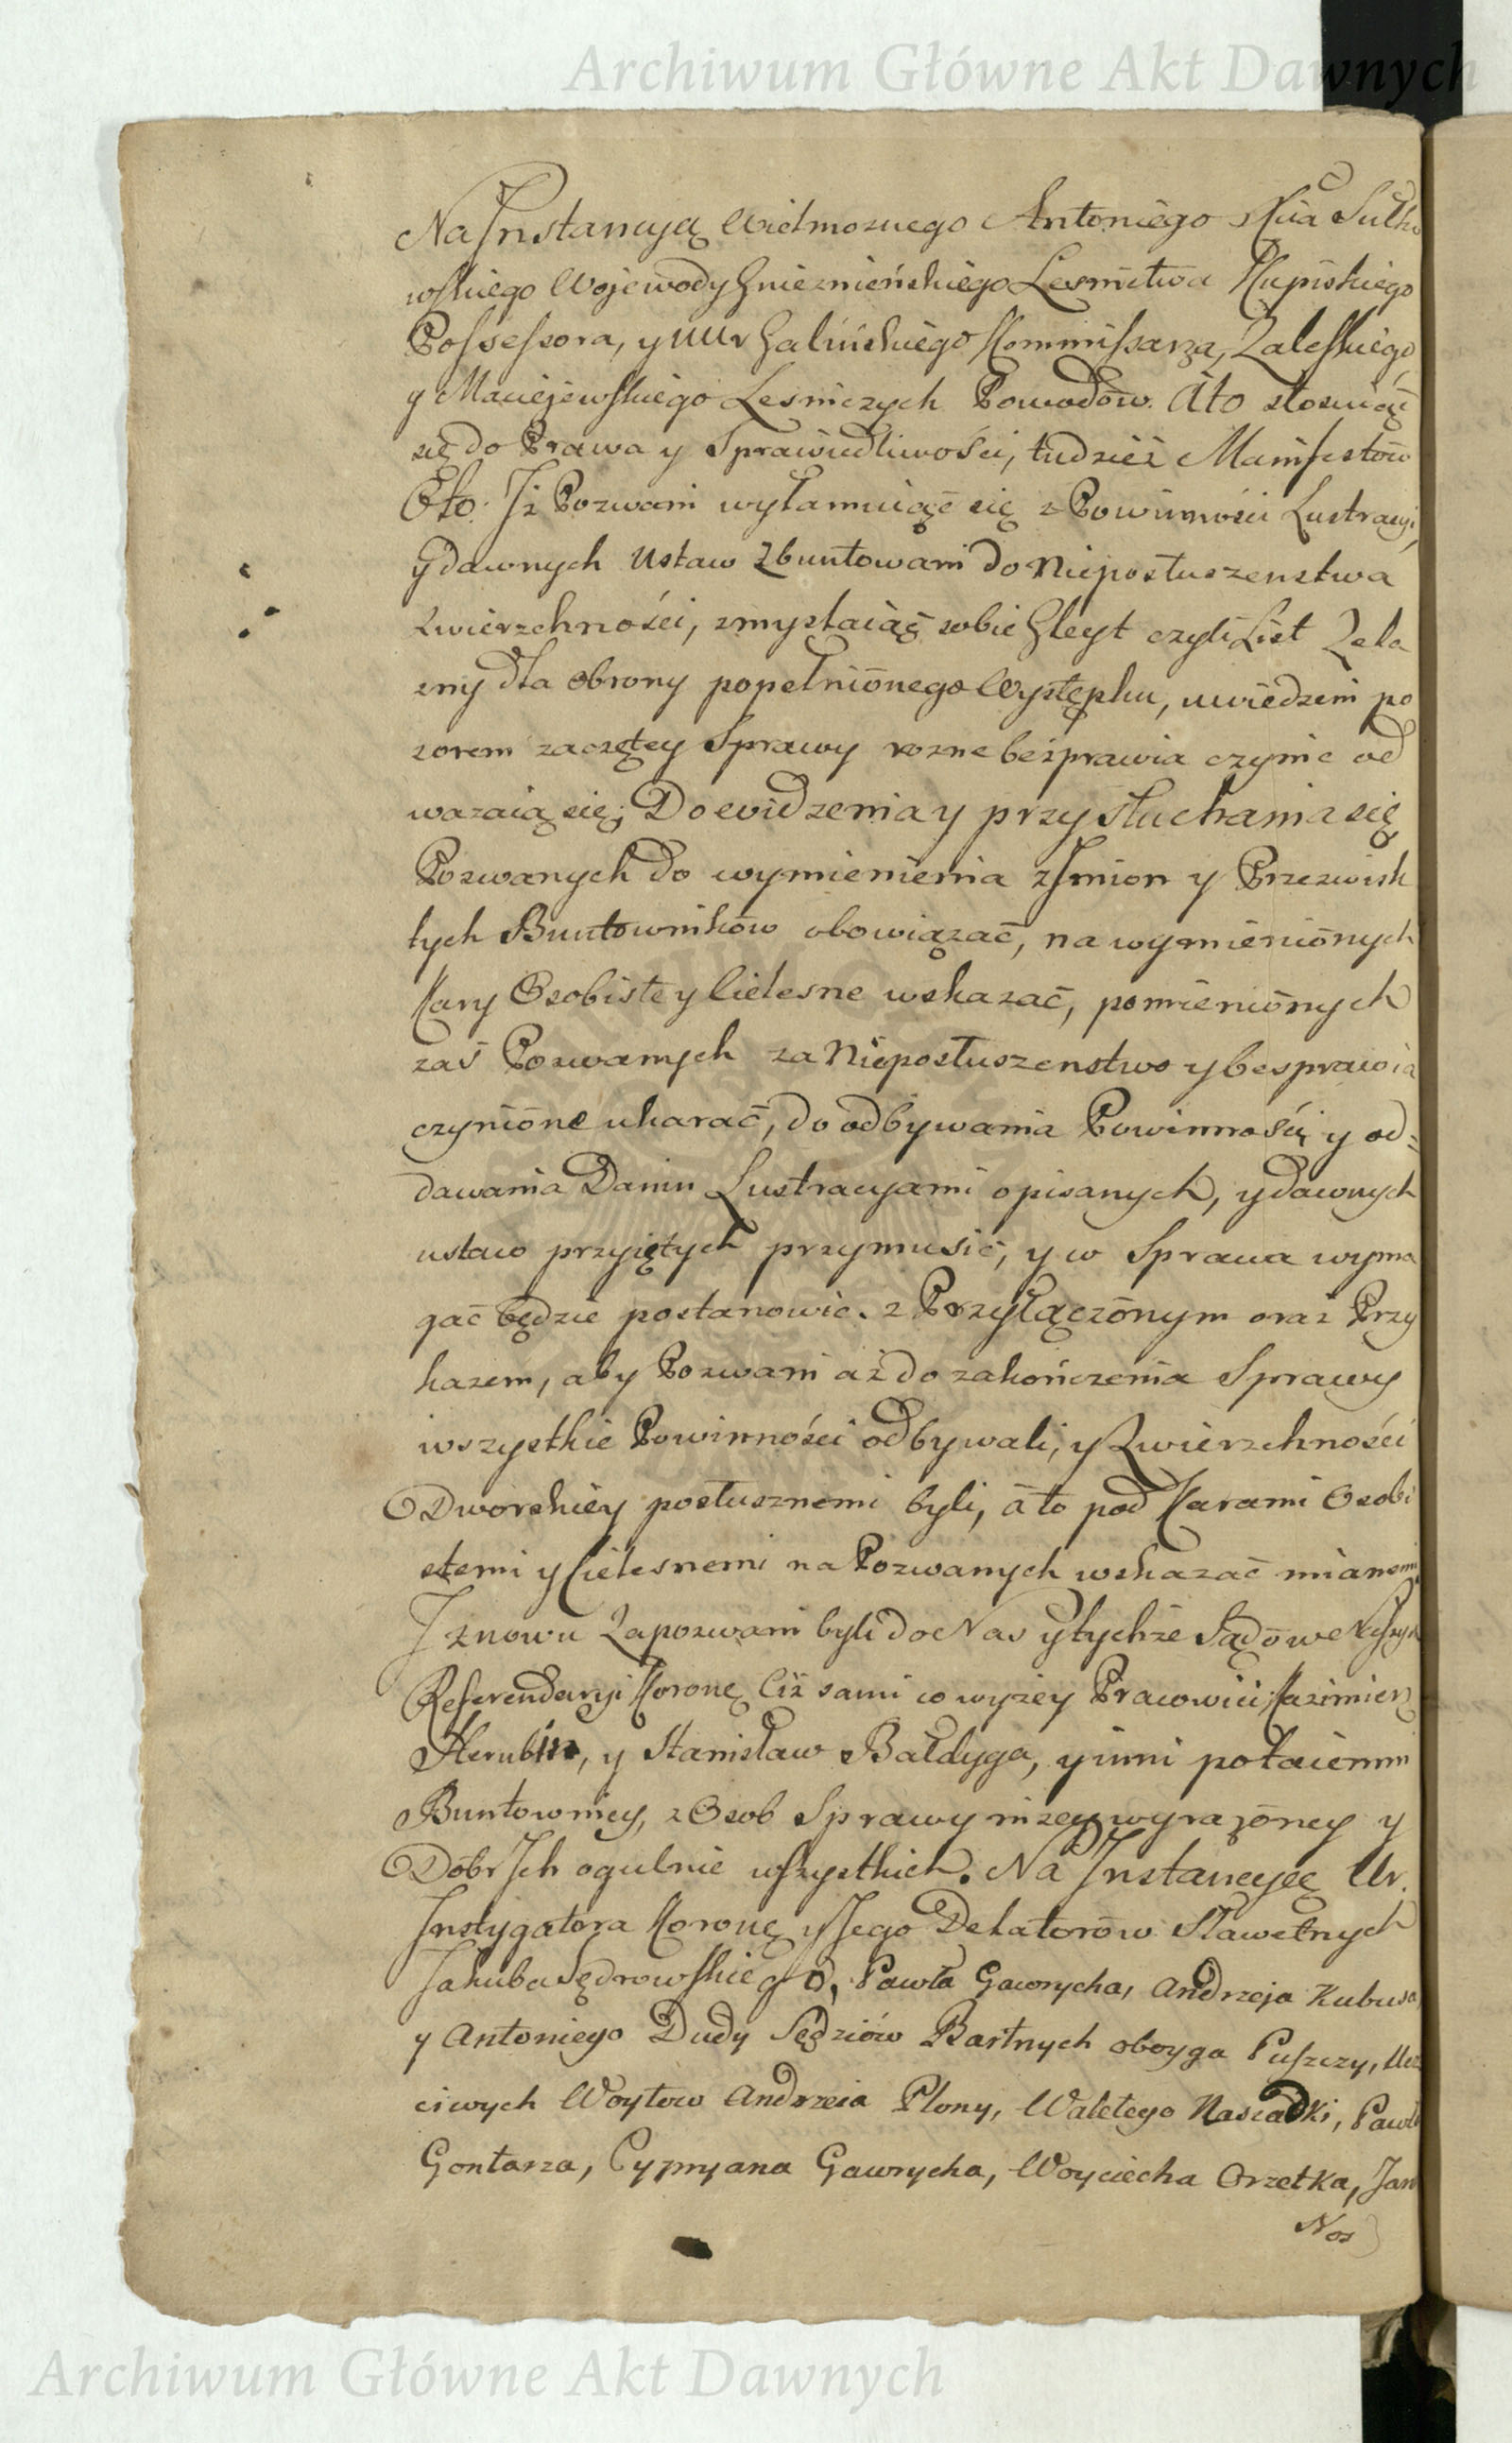 Archiwum Główne Akt Dawnych
Na Jnstancyą Wielmoznego Antoniego Xcia Sułko
wskiego Wojewody Gnieznieńskiego Lesnictwa Kupiskiego
Possessora, y UUr Galińskiego Kommissarza, Zaleskiego
y Maciejewskiego Lesniczych Powodow. A to stosuiąć
się do Prawa y Sprawiedliwości, tudzież Manifestow
Etc. Jż Pozwani wyłamuiąć się z Powinności Lustracyi,
y dawnych Ustaw Zbuntowani do Nieposłuszenstwa
Zwierzchności, zmyslaiąć sobie Gleyt czyli List Zela
zny dla obrony popełnionego Występku, uwiedzeni po
zorem zaczętey Sprawy rozne bezprawia czynić od
wazaią się; Do widzenia y przysłuchania się
Pozwanych do wymienienia z Jmion y Przezwisk
tych Buntownikow obowiązać, na wymienionych
Kary Osobiste y Cielesne wskazać, pomienionych
zaś Pozwanych za Nieposłuszenstwo y besprawia
czynione ukarać, do odbywania Powinności y od=
dawania Danin Lustracyami opisanych, y dawnych
ustaw przyiętych przymusić, y w Sprawa wyma
gać będzie postanowić. z Przyłączonym oraz Przy
kazem, aby Pozwani aż do zakończenia Sprawy
wszystkie Powinności odbywali, y Zwierzchności
Dworskiey posłusznemi byli, a to pod Karami Osobi
stemi y Cielesnemi na Pozwanych wskazać mianemi
J znowu Zapozwani byli do Nas y tychże Sądow Naszych
Referendaryi Koronę Ciż sami co wyzey Pracowici Kazimierz
Herubin, y Stanisław Bałdyga, y inni potaiemni
Buntownicy, z Osob Sprawy nizey wyrazoney y
Dobr Jch ogulnie wszystkich. Na Jnstancyę Ur.
Jnstygatora Koronę y Jego Delatorow Sławetnych
Jakuba Sędrowskiego, Pawła Gawrycha, Andrzeja Kubusa,
y Antoniego Dudy Sędziow Bartnych oboyga Puszczy, Ucz
ciwych Woytow Andrzeia Plony, Walętego Nasiadki, Pawła
Gontarza, Cypryana Gawrycha, Woyciecha Orzełka, Jan
Nos
Archiwum Główne Akt Dawnych